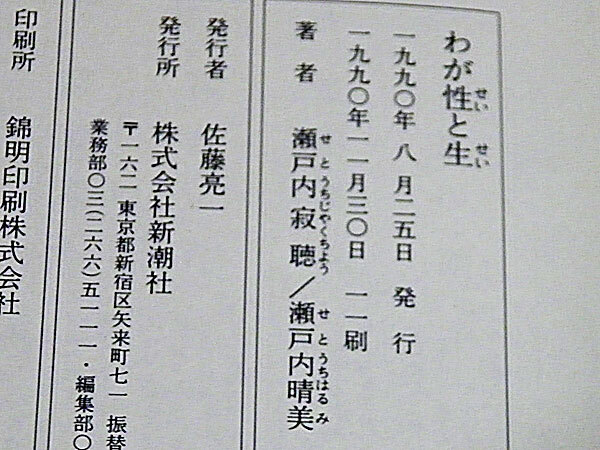 わが性と生
一九九〇年八月二五日 発行
一九九〇年一一月三〇日 一一刷
著者 瀬戸内寂聴／瀬戸内晴美
発行者 佐藤亮一
発行所 株式会社新潮社
〒一六二 東京都新宿区矢来町七一 振替
業務部〇三(二六六)五一一一・編集部〇
印刷所 錦明印刷株式会社